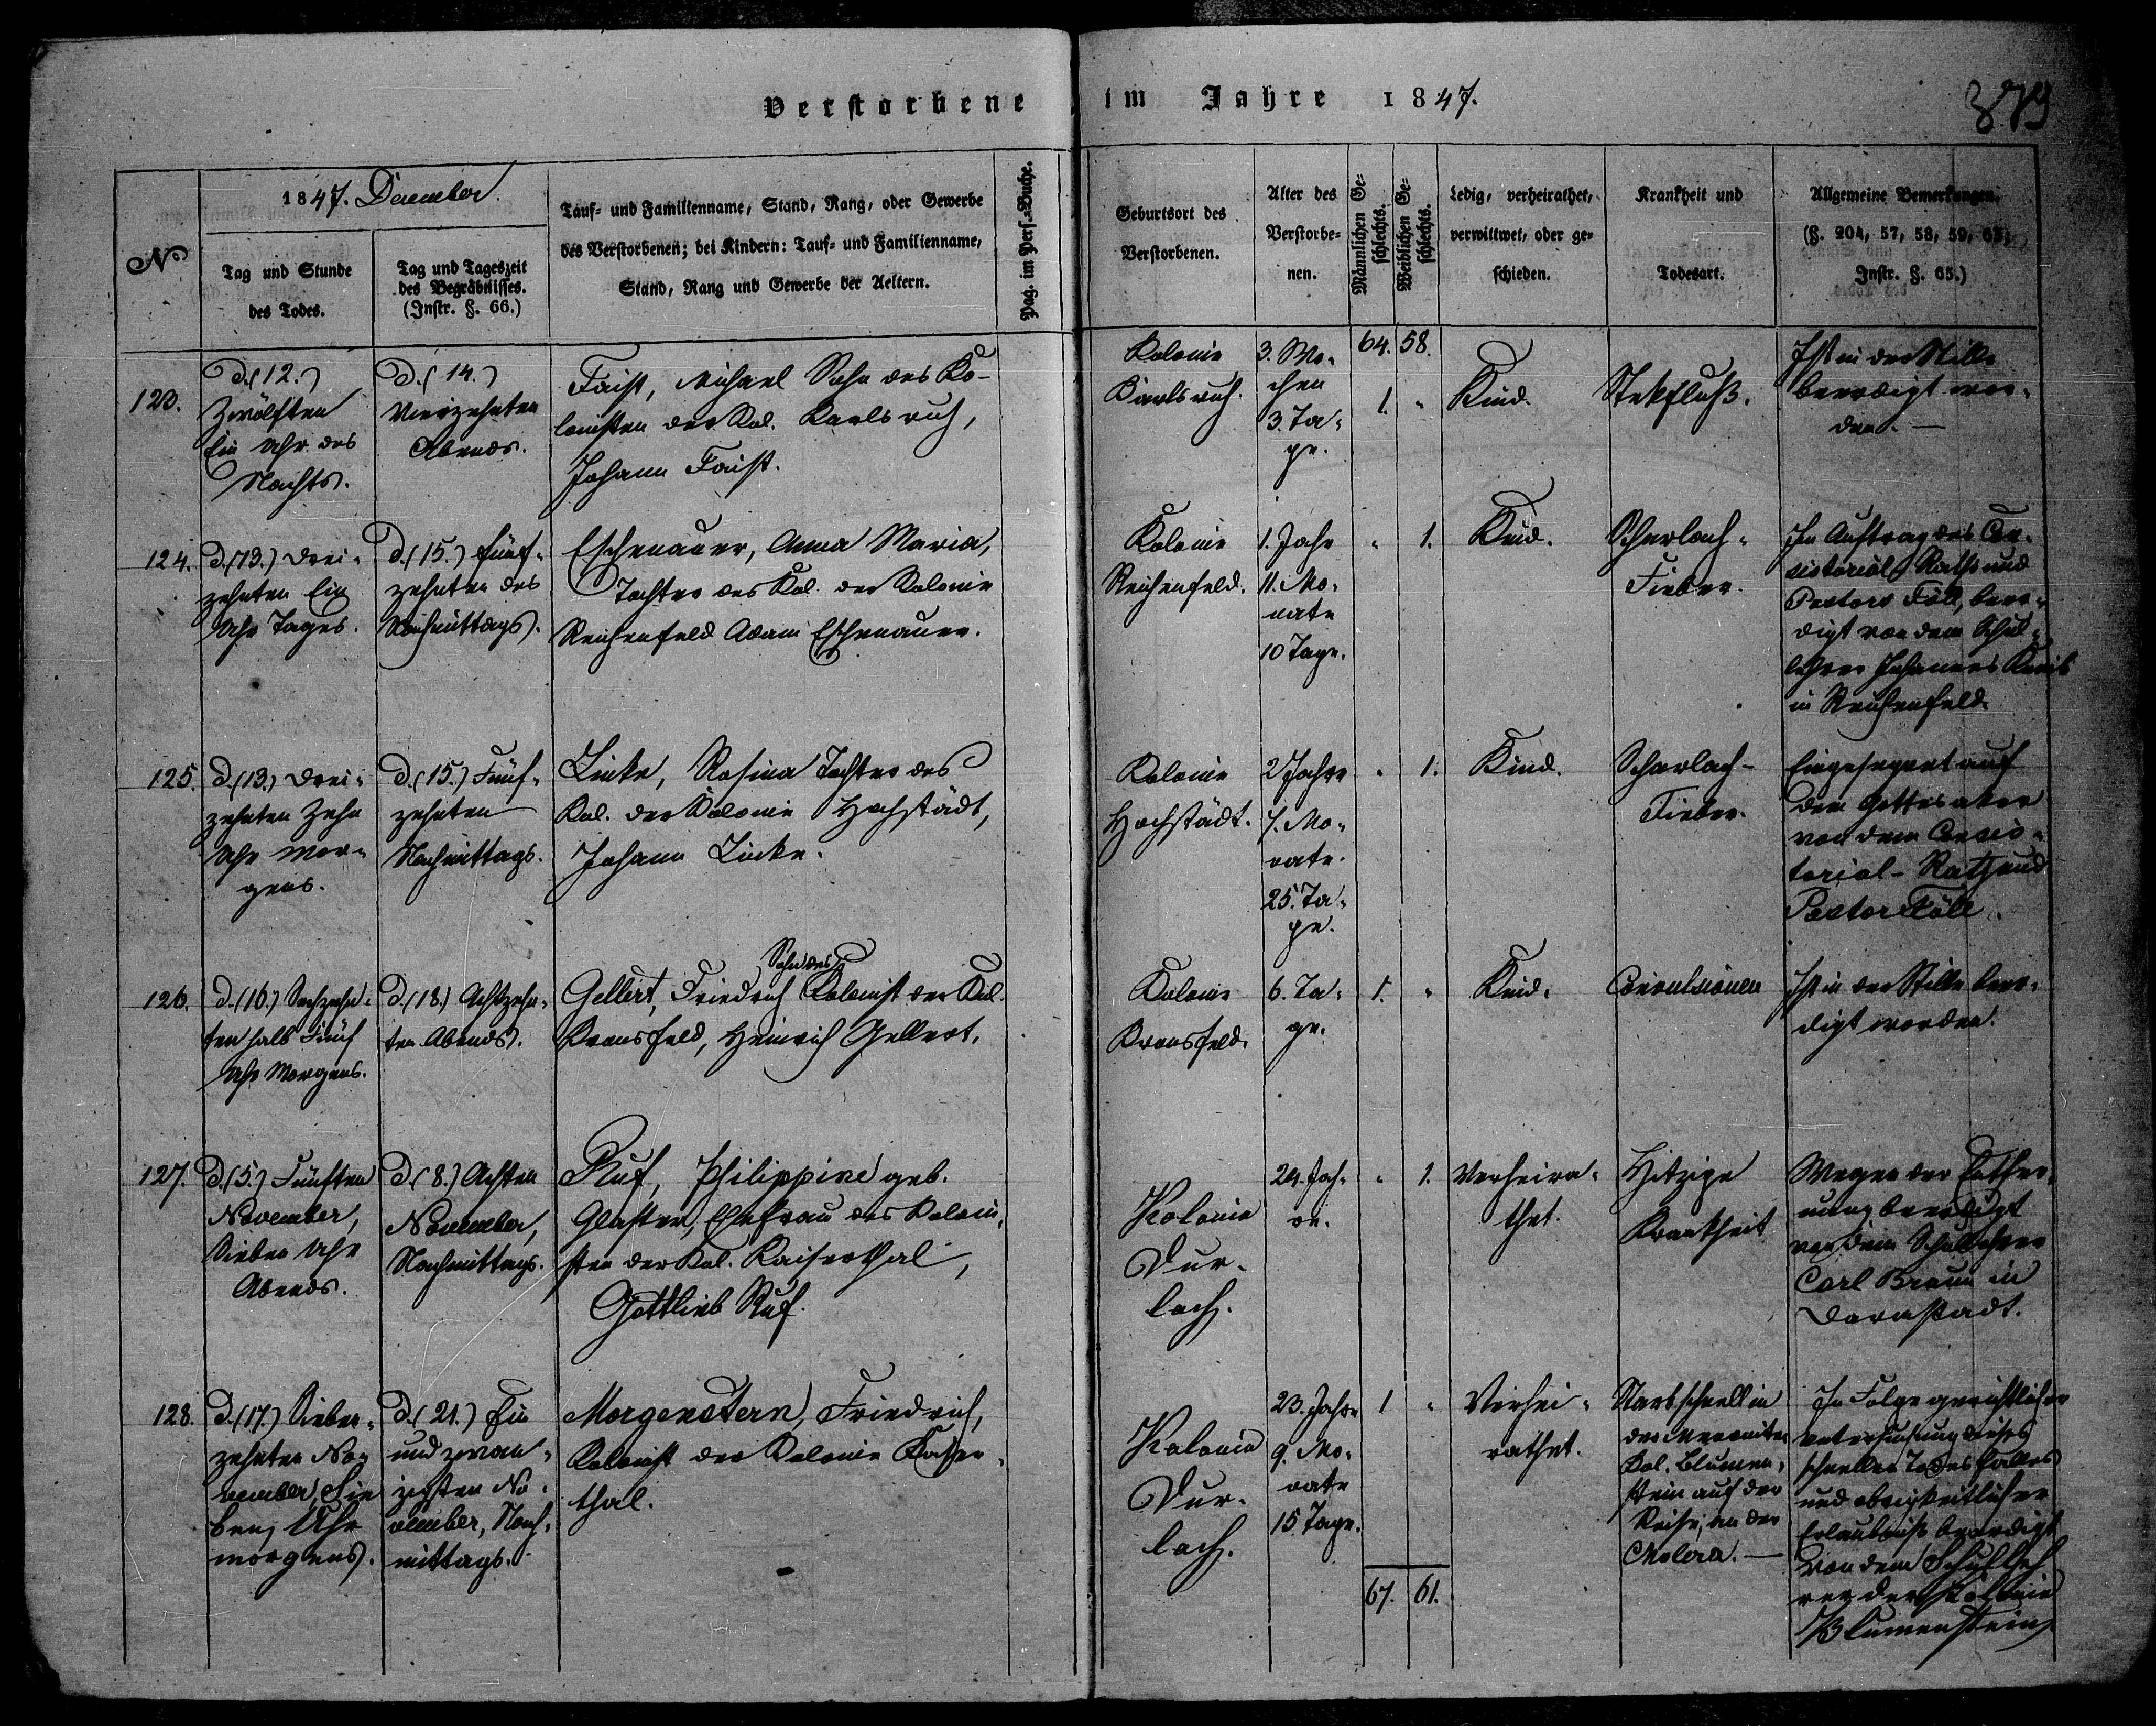 Verstorbene im Jahre 1847.
379
No
1847. December.
Tag und Stunde
des Todes.
Tag und Tageszeit
des Begräbnisses.
(Instr. §. 66.)
Tauf- und Familienname, Stand, Rang, oder Gewerbe
des Verstorbenen; bei Kindern: Tauf- und Familienname,
Stand, Rang und Gewerbe der Aeltern.
Pag. im Pers-Buche.
Geburtsort des
Verstorbenen.
Alter des
Verstorbe-
nen.
Männlichen Ge-
schlechts.
Weiblichen Ge-
schlechts.
Ledig, verheirathet,
verwittwet, oder ge-
schieden.
Krankheit und
Todesart.
Allgemeine Bemerkungen.
(§. 204, 57, 58, 59, 63,
Instr. §. 65.)
64. 58.
123.
D. (12.)
Zwölften
Ein Uhr des
Nachts.
D. (14.)
Vierzehnten
Abends.
Faist, Michael Sohn des Ko-
lonisten der Kol. Karlsruh,
Johann Faist.
Kolonie
Karlsruh.
3. Wo-
chen
3. Ta-
ge.
1. "
Kind.
Stekfluß.
Ist in der Stille
beerdigt wor-
den. —
124.
D. (13.) Drei-
zehnten Ein
Uhr Tages.
D. (15.) Fünf-
zehnten des
Nachmittags.
Eschenauer, Anna Maria,
Tochter des Kol. der Kolonie
Reichenfeld Adam Eschenauer.
Kolonie
Reichenfeld.
1. Jahr
11. Mo-
nate
10 Tage.
" 1.
Kind.
Scharlach-
Fieber.
In Auftrag des Con-
sistorial Raths und
Pastors Föll, beer-
digt von dem Schul-
lehrer Johannes
in Reichenfeld.
125.
D. (13.) Drei-
zehnten Zehn
Uhr Mor-
gens.
D. (15.) Fünf-
zehnten
Nachmittags.
Linke, Rosina Tochter des
Kol. der Kolonie Hochstädt,
Johann Linke.
Kolonie
Hochstädt.
2 Jahre
7. Mo-
nate.
25. Ta-
ge.
" 1.
Kind.
Scharlach-
Fieber.
Eingesegnet auf
dem Gottesaker
von dem Consis-
torial-Rath und
Pastor Föll.
126.
D. (16.) Sechzehn-
ten halb Fünf
Uhr Morgens.
D. (18.) Achtzehn-
ten Abends.
Sohn des
Gellert, Friedrich Kolonist der Kol.
Kronsfeld, Heinrich Gellert.
Kolonie
Kronsfeld.
6. Ta-
ge.
1. "
Kind.
Convulsionen
Ist in der Stille beer-
digt worden.
127.
D. (5.) Fünften
November,
Sieben Uhr
Abends.
D. (8.) Achten
November,
Nachmittags.
Ruf, Philippine geb.
Glaster, Ehefrau des Koloni-
sten der Kol. Kaiserthal,
Gottlieb Ruf.
Kolonie
Dur-
lach.
24. Jah-
re.
" 1.
Verheira-
thet.
Hitzige
Krankheit
Wegen der Entfer-
nung beerdigt
von dem Schullehrer
Carl Braun in
Darmstadt.
128.
D. (17.) Sieben-
zehnten No-
vember, Sie
ben, Uhr
morgens.
D. (21.) Ein
und zwan-
zigsten No-
vember, Nach-
mittags.
Morgenstern, Friedrich,
Kolonist der Kolonie Kaiser-
thal.
Kolonie
Dur-
lach.
23. Jahre
9. Mo-
nate
15 Tage.
1 "
Verhei-
rathet.
Starb schnell in
der Menoniten
Kol. Blumen-
stein auf der
Reise, an der
Cholera. —
In Folge gerichtlicher
Untersuchung dieses
schnellen Todesfalles
und obrigkeitlicher
Erlaubniß beerdigt
von dem Schulleh
rer der Kolonie
Blumenstein
67. 61.